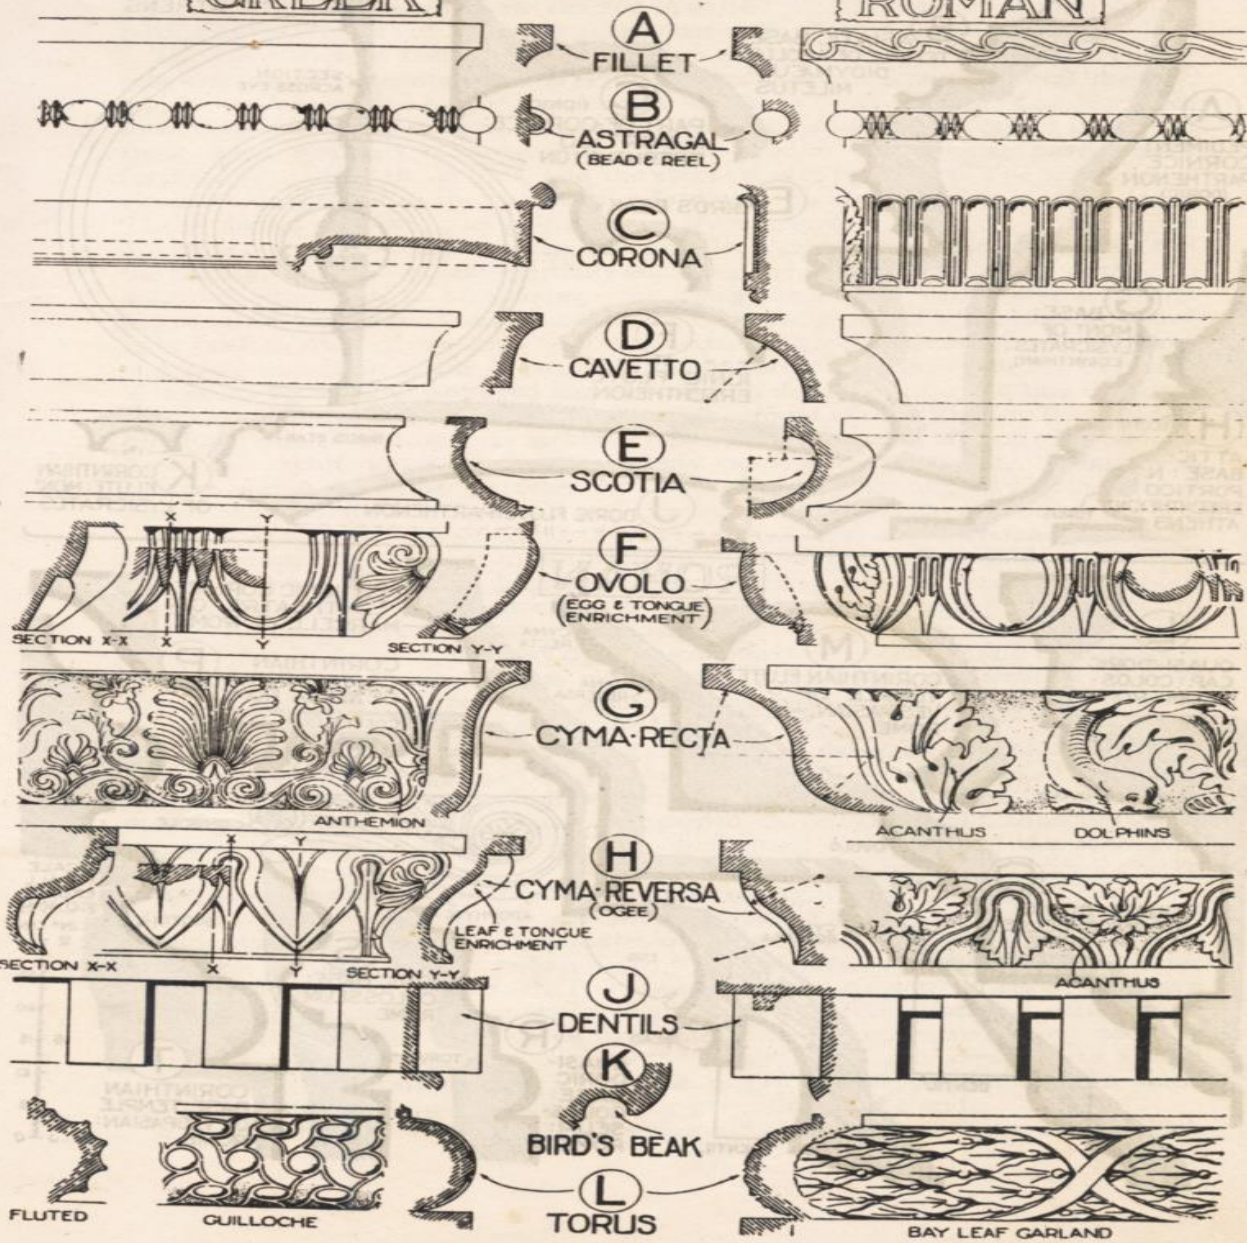 GREEK
ROMAN
A
FILLET
B
ASTRAGAL
(BEAD & REEL)
C
CORONA
D
CAVETTO
E
SCOTIA
F
OVOLO
(EGG & TONGUE
ENRICHMENT)
X
Y
SECTION X-X
X
Y
SECTION Y-Y
G
CYMA·RECTA
ANTHEMION
ACANTHUS
DOLPHINS
H
CYMA·REVERSA
(OGEE)
X
Y
LEAF & TONGUE
ENRICHMENT
SECTION X-X
X
Y
SECTION Y-Y
ACANTHUS
J
DENTILS
K
BIRD'S BEAK
L
TORUS
FLUTED
GUILLOCHE
BAY LEAF GARLAND